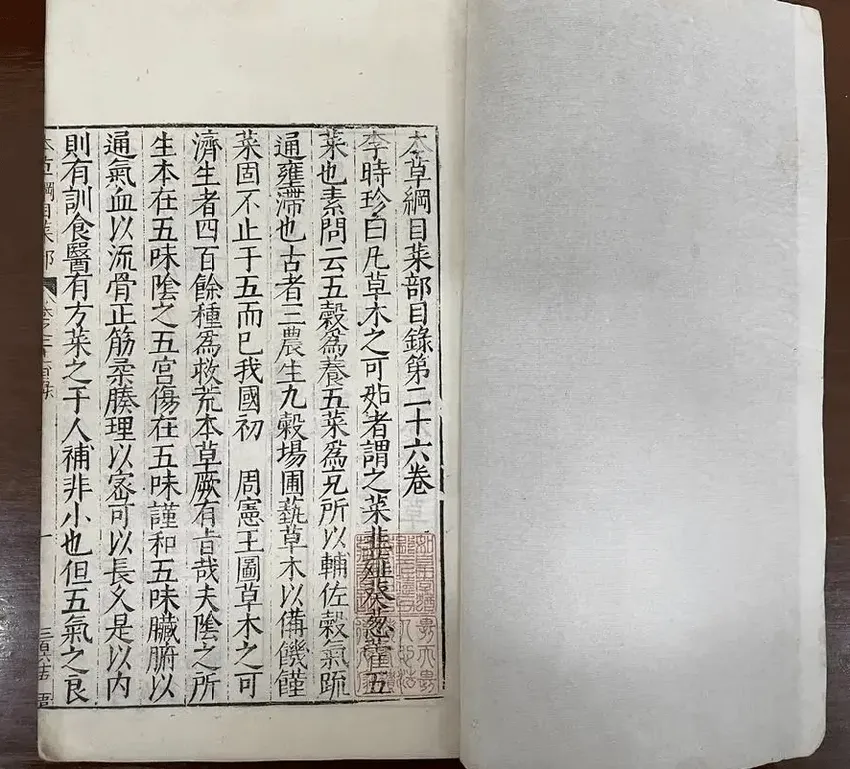 本草綱目菜部目錄第二十六卷
李時珍曰凡草木之可茹者謂之菜韭薤葵葱藿五
菜也素問云五穀為養五菜為充所以輔佐穀氣疏
通壅滯也古者三農生九穀場圃蓺草木以備饑饉
菜固不止于五而已我國初 周憲王圖草木之可
濟生者四百餘種為救荒本草厥有旨哉夫陰之所
生本在五味陰之五宮傷在五味謹和五味臟腑以
通氣血以流骨正筋柔腠理以密可以長久是以内
則有訓食醫有方菜之于人補非小也但五氣之良
本草綱目菜部